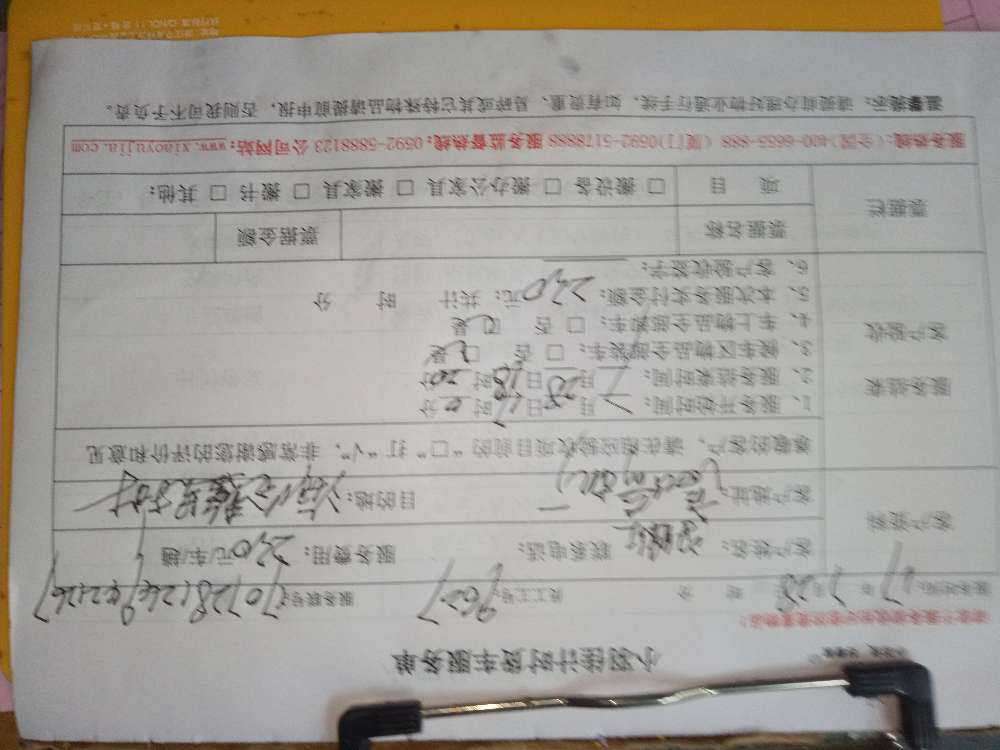 小羽佳计时货车服务单
服务时间: 17 年 7 月 28 日 时 分 员工工号: 9627 服务联号:
客户资料 客户姓名: 联系电话: 服务费用: 220元/车/趟
客户地址: 目的地:
尊敬的客户，请在相应验收项目前的“□”打“√”，非常感谢您的评价和意见
服务结束 客户验收
1、服务开始时间: 7月28日17时 分
2、服务结束时间: 7月28日18时20分
3、候车区物品全部装车: □ 否 □ 是
4、车上物品全部卸车: □ 否 □ 是
5、本次服务实付金额: 220元; 共计 时 分
6、客户验收签字:
票据栏 票据名称 票据金额
项目 □ 搬设备 □ 搬办公家具 □ 搬家具 □ 搬书 □ 其他:
服务热线:(全国)400-6655-888 (厦门)0592-5178888 服务监督热线:0592-5888123 公司网站:www.xiaoyujia.com
温馨提示: 请提前办理好物业通行手续，如有贵重、易碎或其它特殊物品请提前申报，否则我司不予负责。